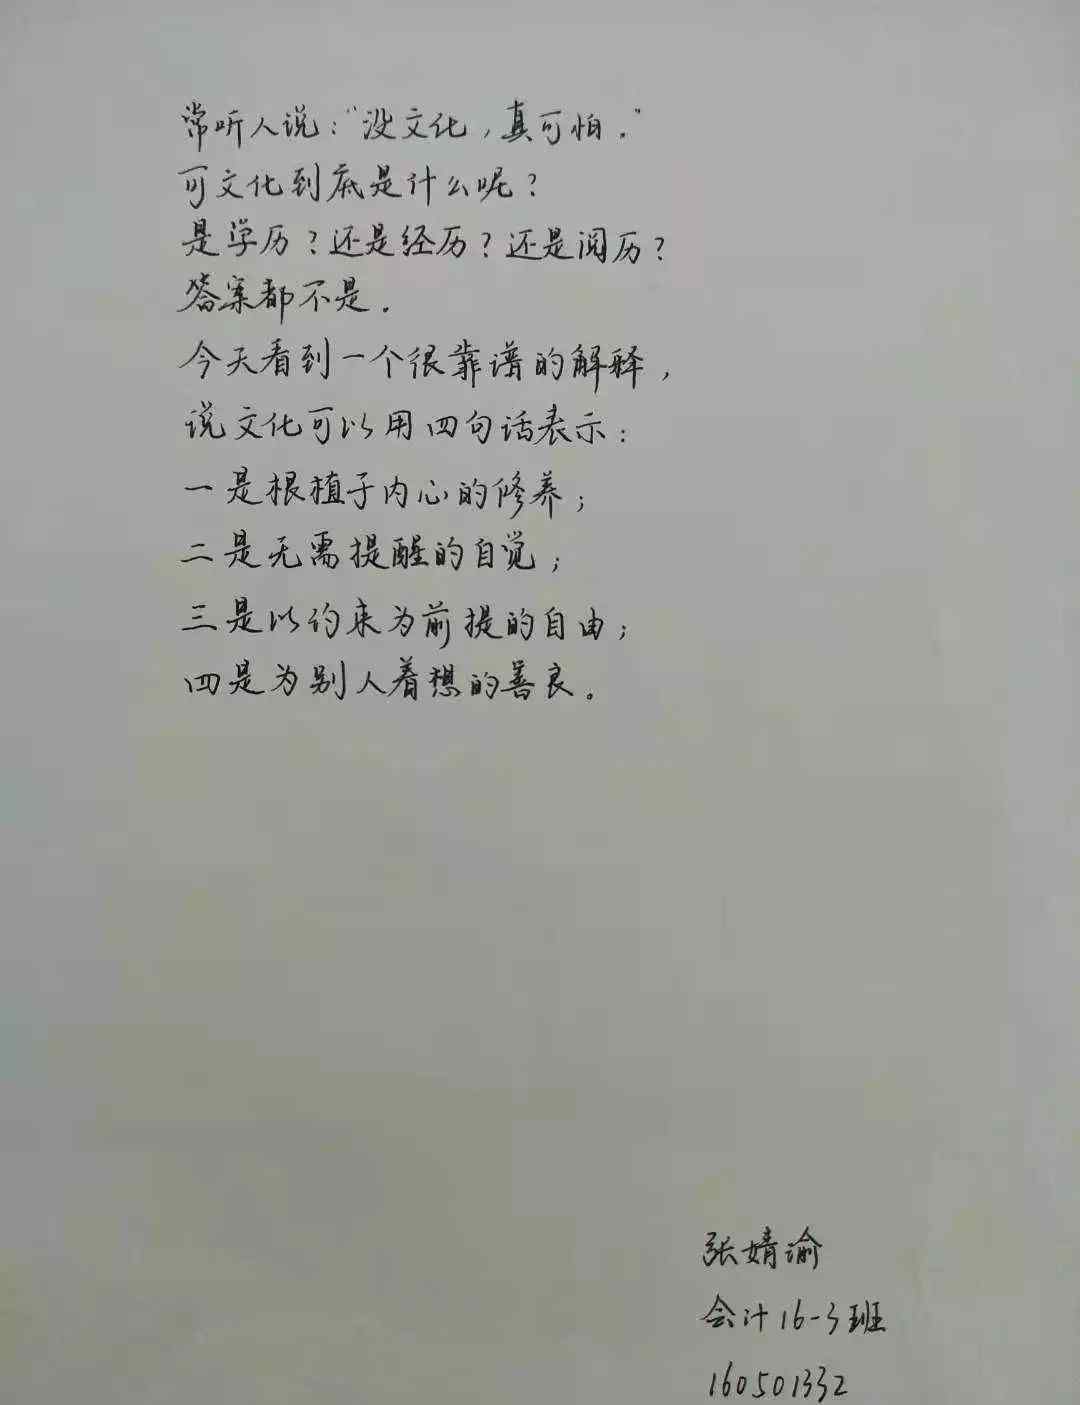 常听人说：“没文化，真可怕．”
可文化到底是什么呢？
是学历？还是经历？还是阅历？
答案都不是．
今天看到一个很靠谱的解释，
说文化可以用四句话表示：
一是根植于内心的修养；
二是无需提醒的自觉；
三是以约束为前提的自由；
四是为别人着想的善良。
张婧谕
会计16-3班
160501332